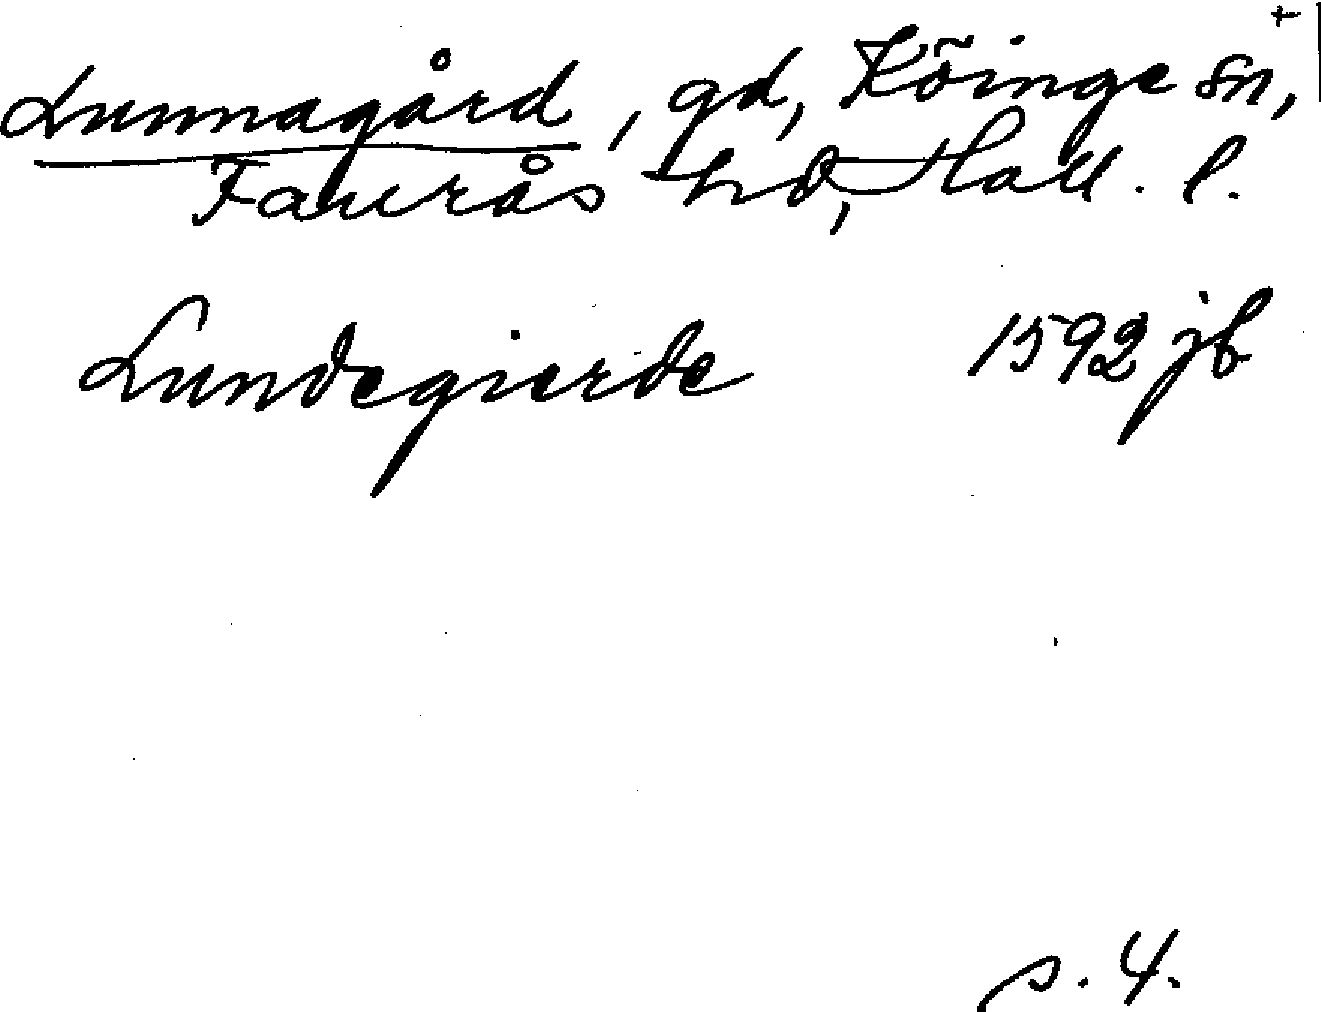 Lunnagård, gd, Köinge sn,
Faurås hd, Hall. l.
Lundegierde 1592 jb
s. 4.